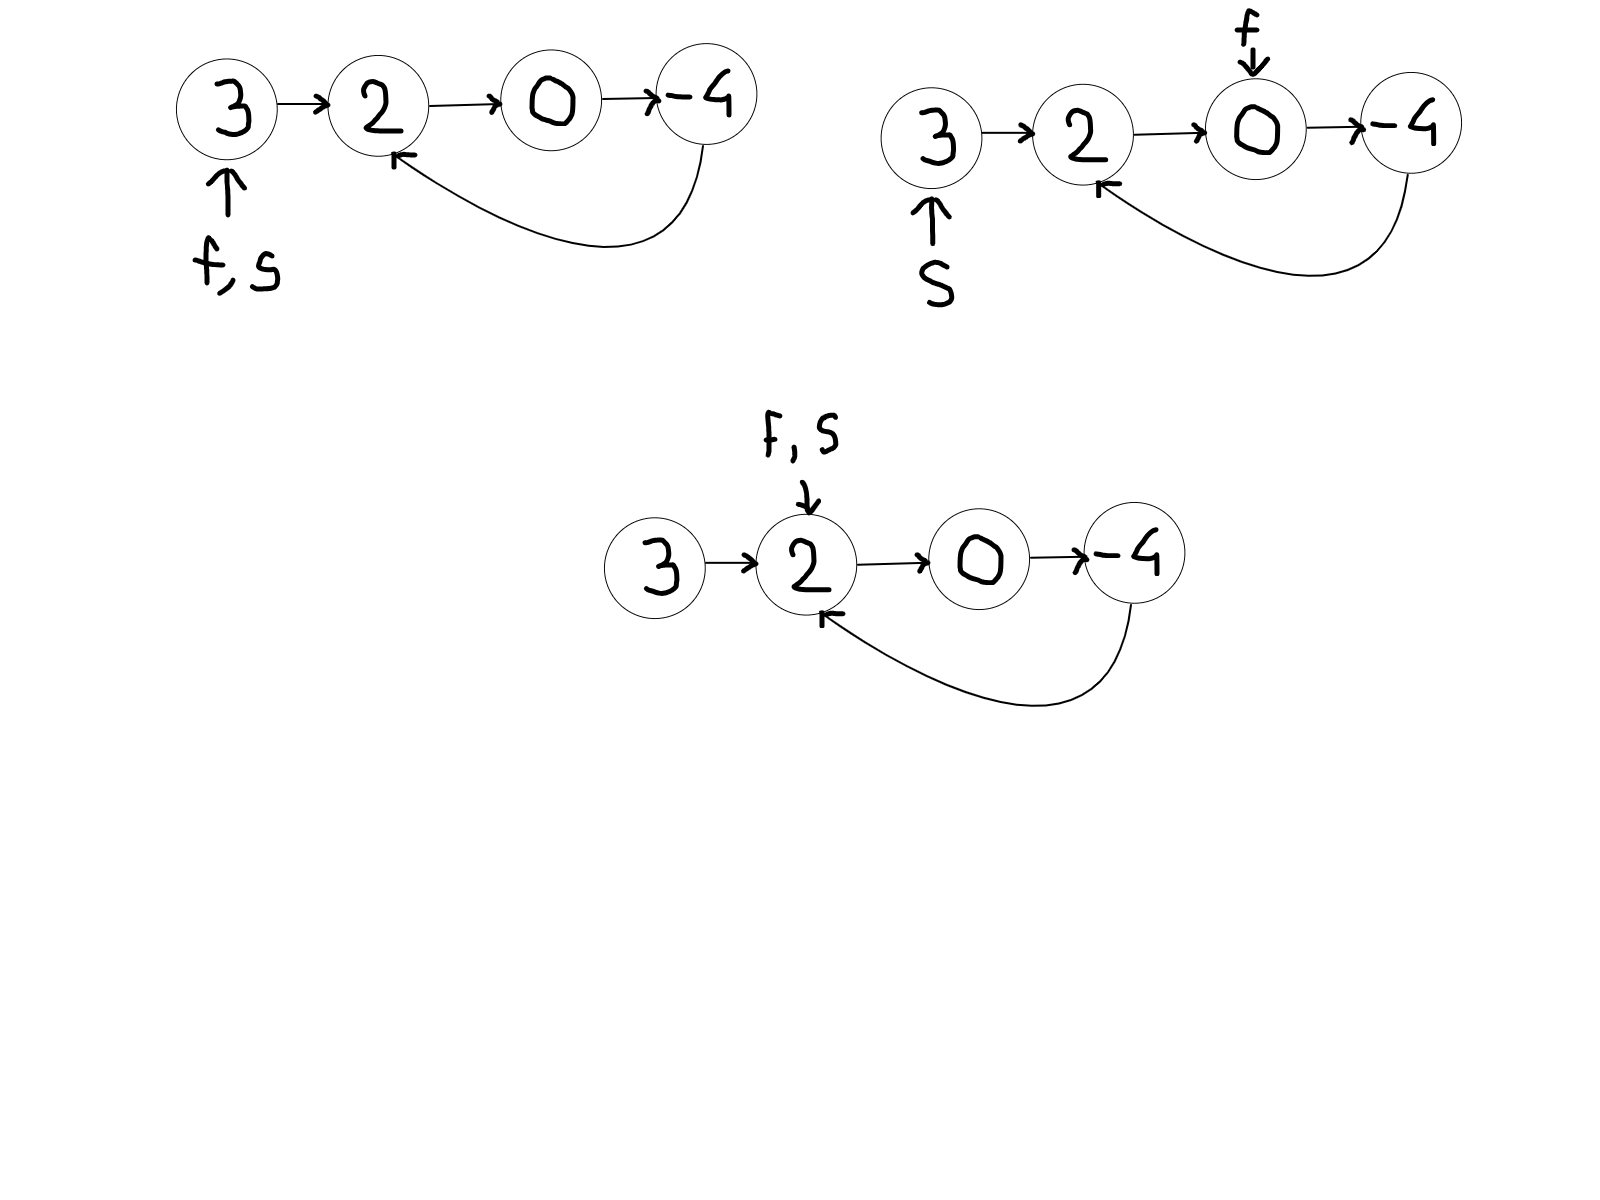 3 2 0 -4
f, s
f
3 2 0 -4
S
F, S
3 2 0 -4